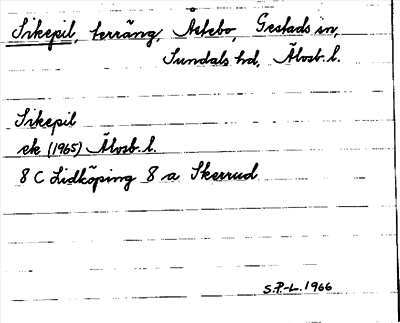 Sikepil, terräng, Astebo, Gestads sn,
Sundals hd, Älvsb. l.
Sikepil
ek (1965) Älvsb. l.
8 C Lidköping 8 a Skerrud
S.P.-L. 1966